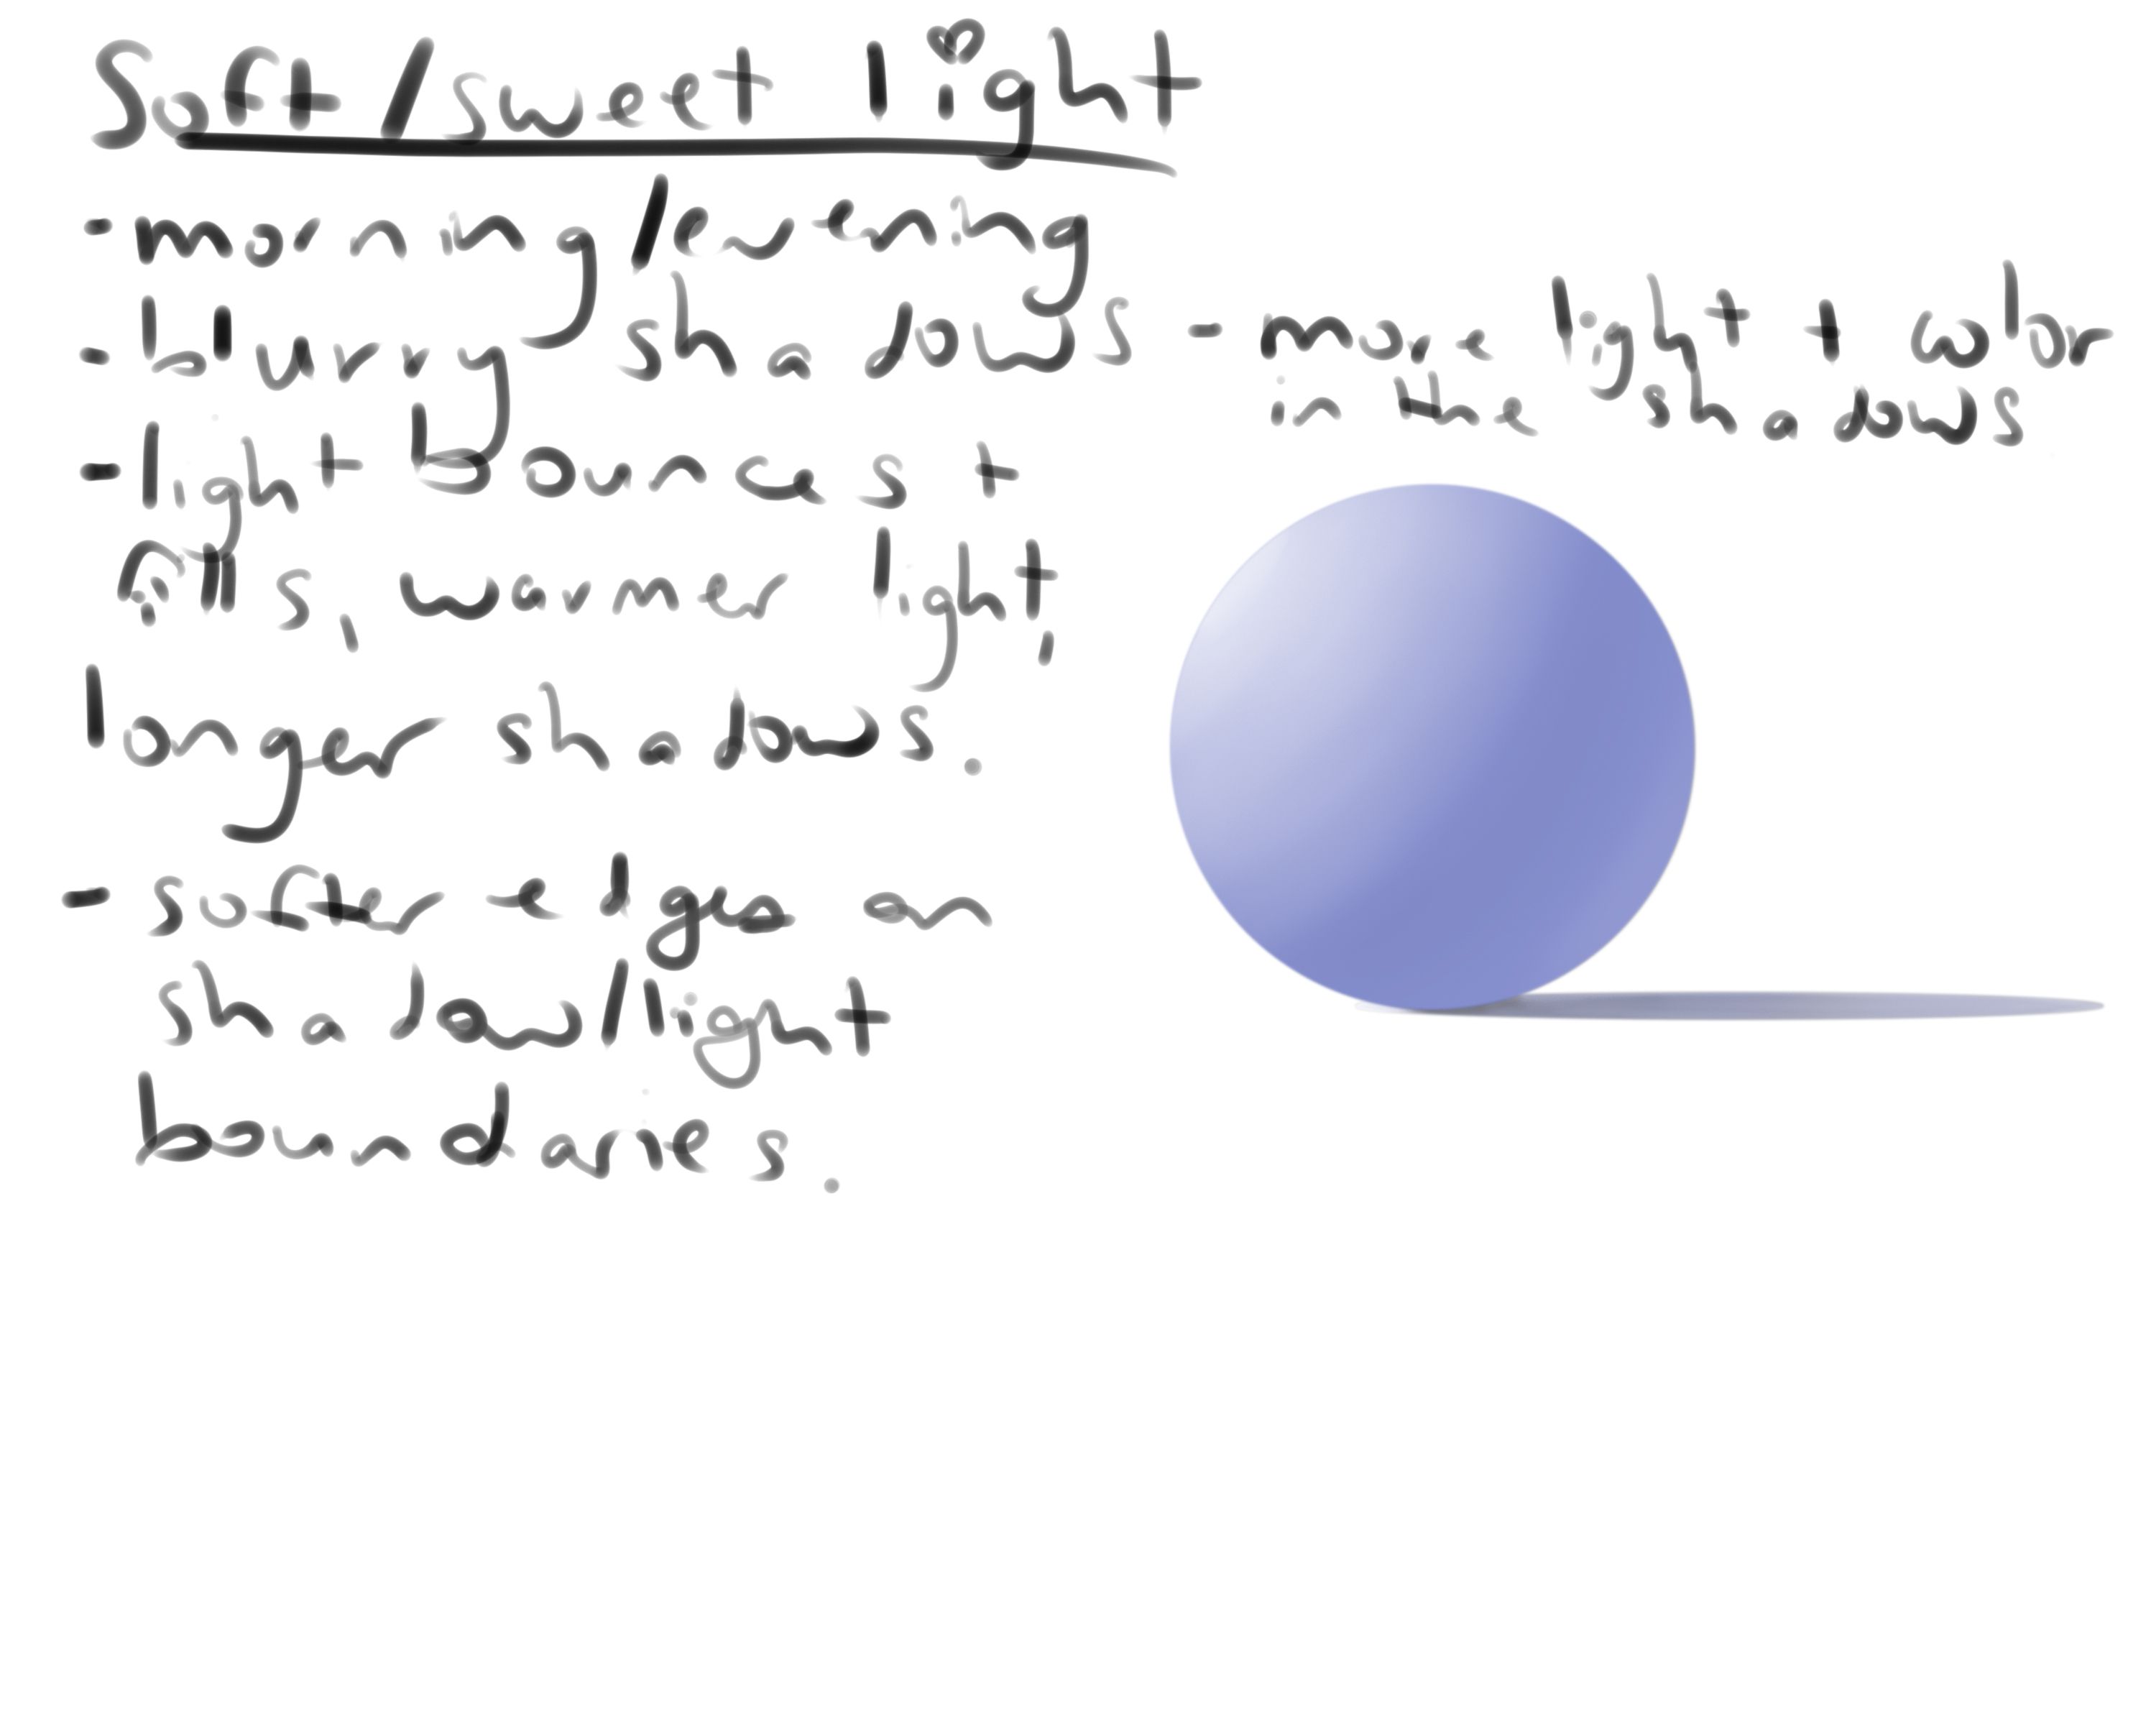 Soft/sweet light
- morning/evening
- blurry shadows - more light + color
in the shadows
- light bounces +
fills, warmer light,
longer shadows.
- softer edges on
shadow/light
boundaries.